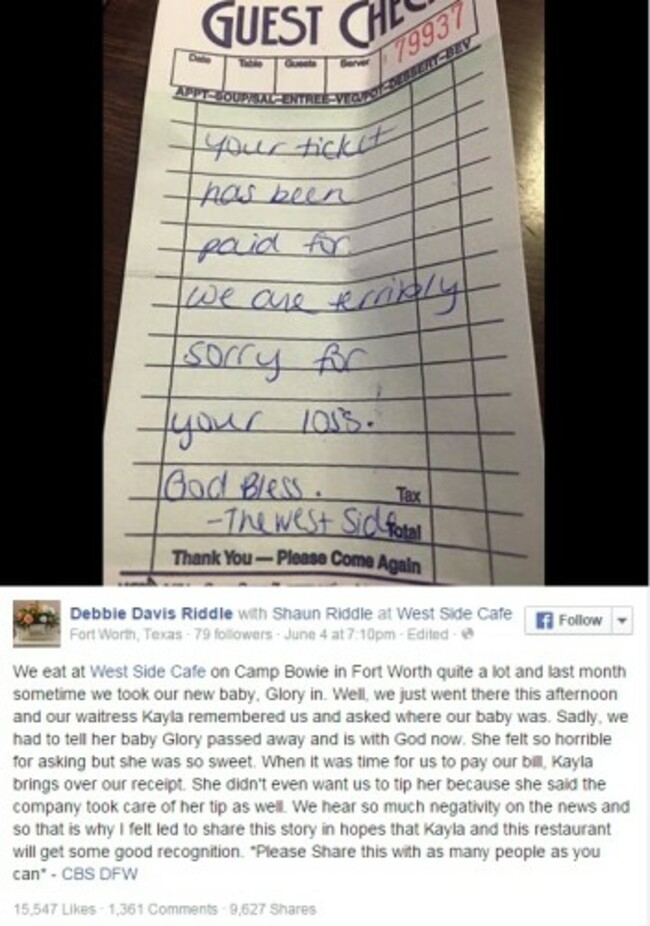 GUEST CHEC
79937
Date Table Guests Server
APPT-SOUP/SAL-ENTREE-VEG/POT-DESSERT-BEV
your ticket
has been
paid for.
we are terribly
sorry for
your loss.
God Bless. Tax
-The West Side Total
Thank You — Please Come Again
Debbie Davis Riddle with Shaun Riddle at West Side Cafe
Follow
Fort Worth, Texas · 79 followers · June 4 at 7:10pm · Edited ·
We eat at West Side Cafe on Camp Bowie in Fort Worth quite a lot and last month
sometime we took our new baby, Glory in. Well, we just went there this afternoon
and our waitress Kayla remembered us and asked where our baby was. Sadly, we
had to tell her baby Glory passed away and is with God now. She felt so horrible
for asking but she was so sweet. When it was time for us to pay our bill, Kayla
brings over our receipt. She didn't even want us to tip her because she said the
company took care of her tip as well. We hear so much negativity on the news and
so that is why I felt led to share this story in hopes that Kayla and this restaurant
will get some good recognition. *Please Share this with as many people as you
can* - CBS DFW
15,547 Likes · 1,361 Comments · 9,627 Shares